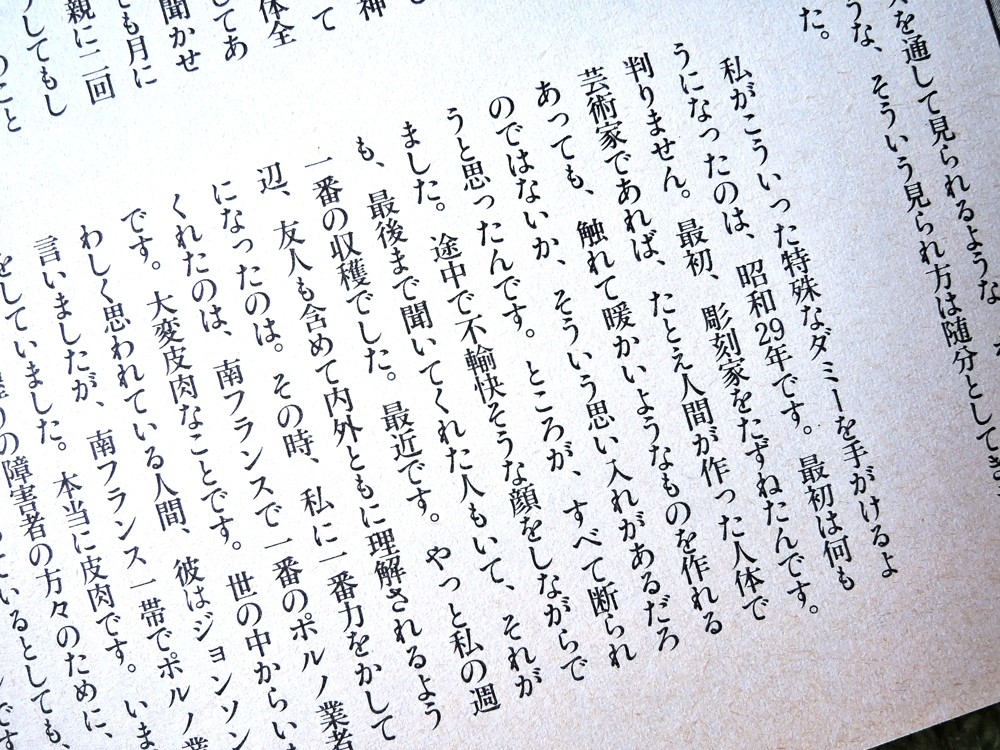 を通して見られるような
うな、そういう見られ方は随分としてき
た。
私がこういった特殊なダミーを手がけるよ
うになったのは、昭和29年です。最初は何も
判りません。最初、彫刻家をたずねたんです。
芸術家であれば、たとえ人間が作った人体で
あっても、触れて暖かいようなものを作れる
のではないか、そういう思い入れがあるだろ
うと思ったんです。ところが、すべて断られ
ました。途中で不愉快そうな顔をしながらで
も、最後まで聞いてくれた人もいて、それが
一番の収穫でした。最近です。やっと私の週
辺、友人も含めて内外ともに理解されるよう
になったのは。その時、私に一番力をかして
くれたのは、南フランスで一番のポルノ業者
です。大変皮肉なことです。世の中からい
わしく思われている人間、彼はジョンソン
言いましたが、南フランス一帯でポルノ業
をしていました。本当に皮肉です。いま
の障害者の方々のために、
いるとしても、
て
神
体全
してあ
聞かせ
ても月に
親に二回
うしてもし
のこと